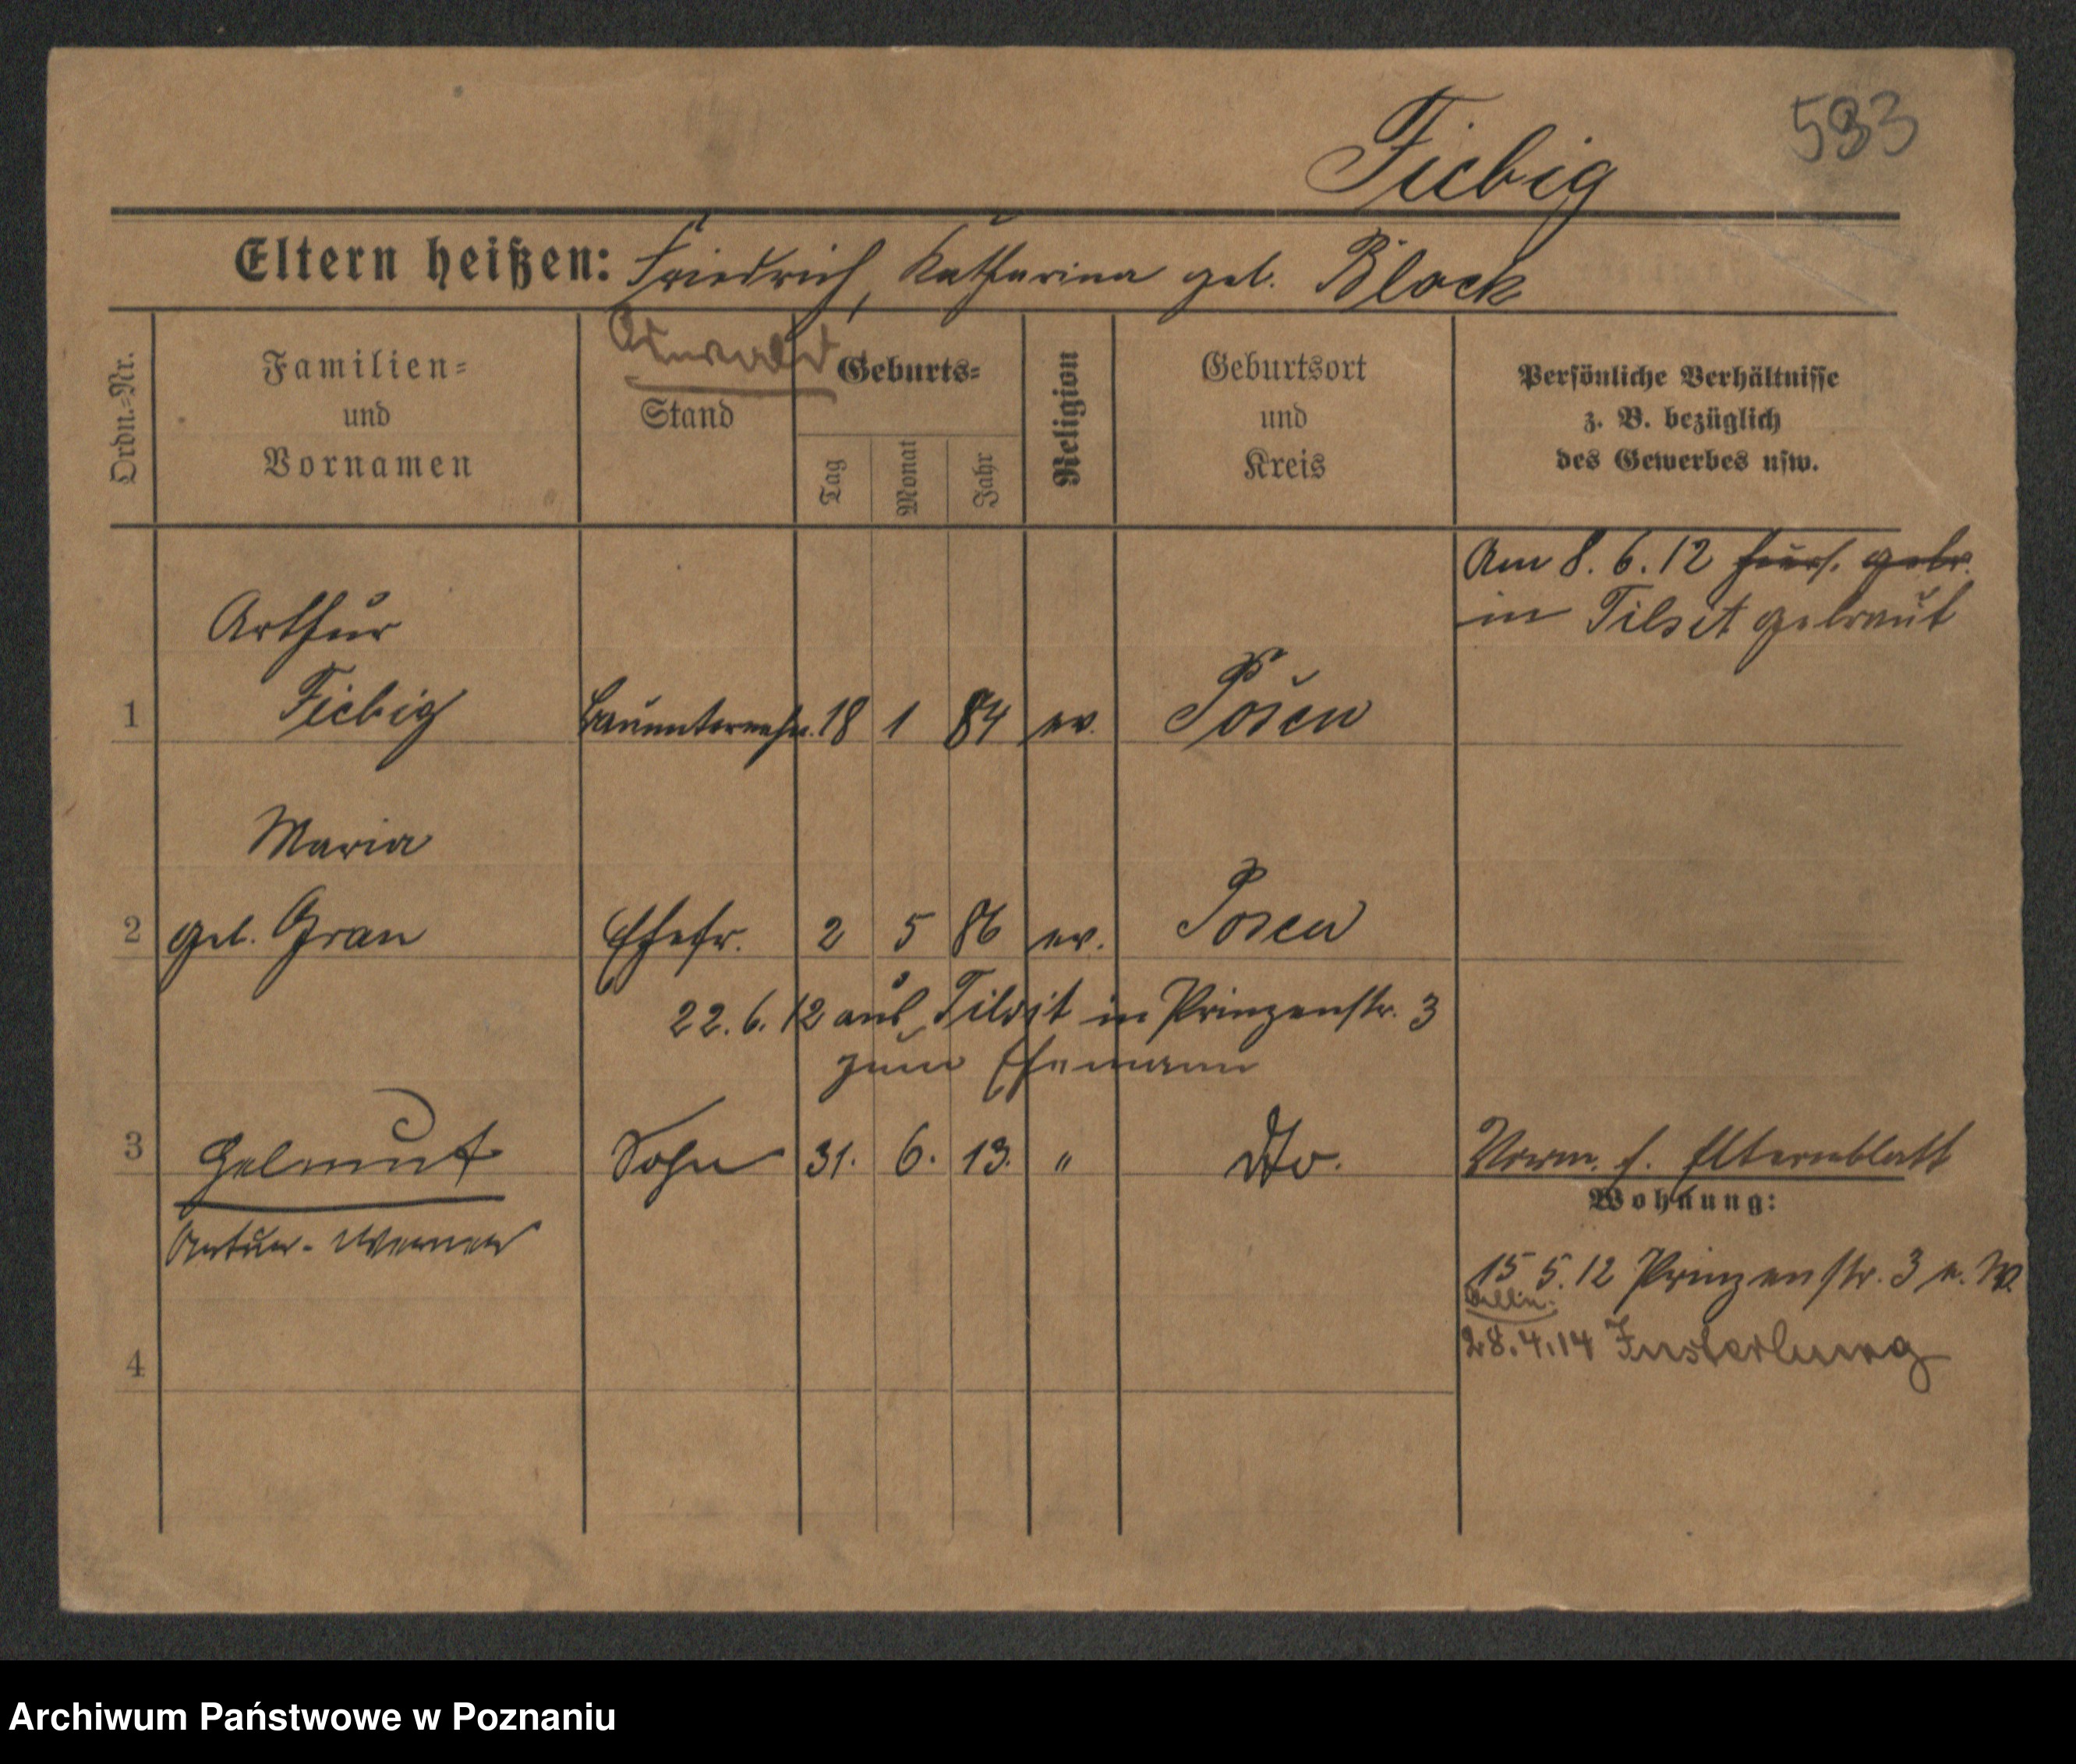 593
Fiebig
Eltern heißen: Friedrich, Katharina geb. Block
Ordn.-Nr.
Familien-
und
Vornamen
Stand
Geburts-
Tag
Monat
Jahr
Religion
Geburtsort
und
Kreis
Persönliche Verhältnisse
z. B. bezüglich
des Gewerbes usw.
Am 8.6.12
in Tilsit getraut
Arthur
1 Fiebig Bauunternehm. 18 1 84 ev. Posen
Maria
2 geb. Gran Ehefr. 2 5 86 ev. Posen
22.6.12 aus Tilsit in Prinzenstr. 3
zum Ehemann
3 Helmut Sohn 31. 6. 13. " dto. Verm. f. Elternblatt
Artur-Werner
Wohnung:
15 5.12 Prinzenstr. 3 b. W.
28.4.14 Insterburg
4
Archiwum Państwowe w Poznaniu